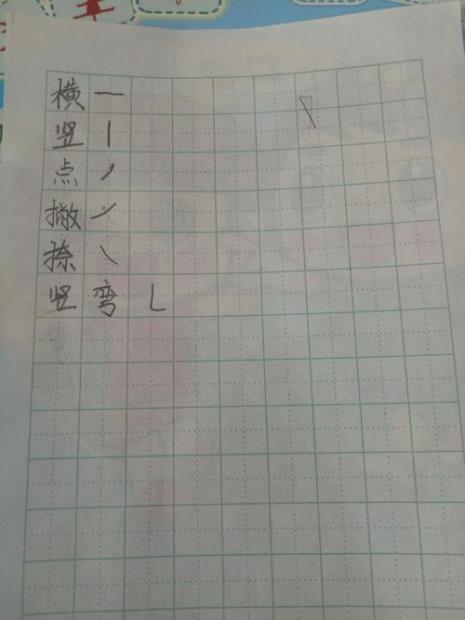 横 一
竖 丨
点 ㇒
撇 丿
捺 ㇏
竖 弯 ㇄